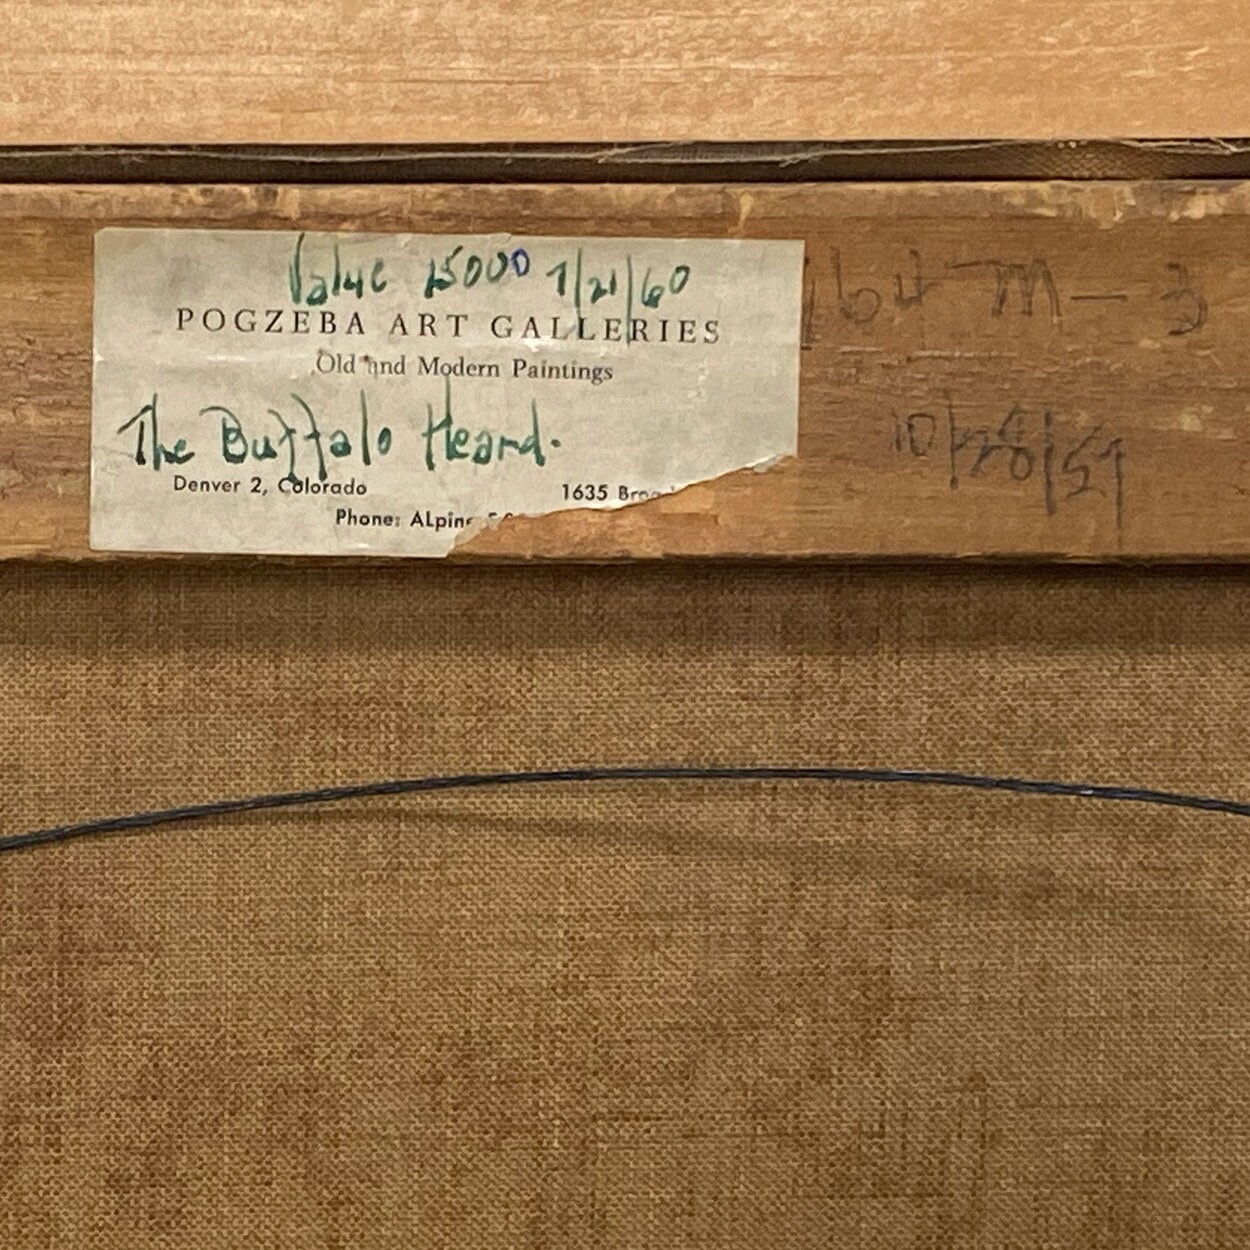 Value 15000 7/21/60
POGZEBA ART GALLERIES
Old and Modern Paintings
The Buffalo Heard.
Denver 2, Colorado 1635
Phone: ALpine
164-M-3
10/28/59